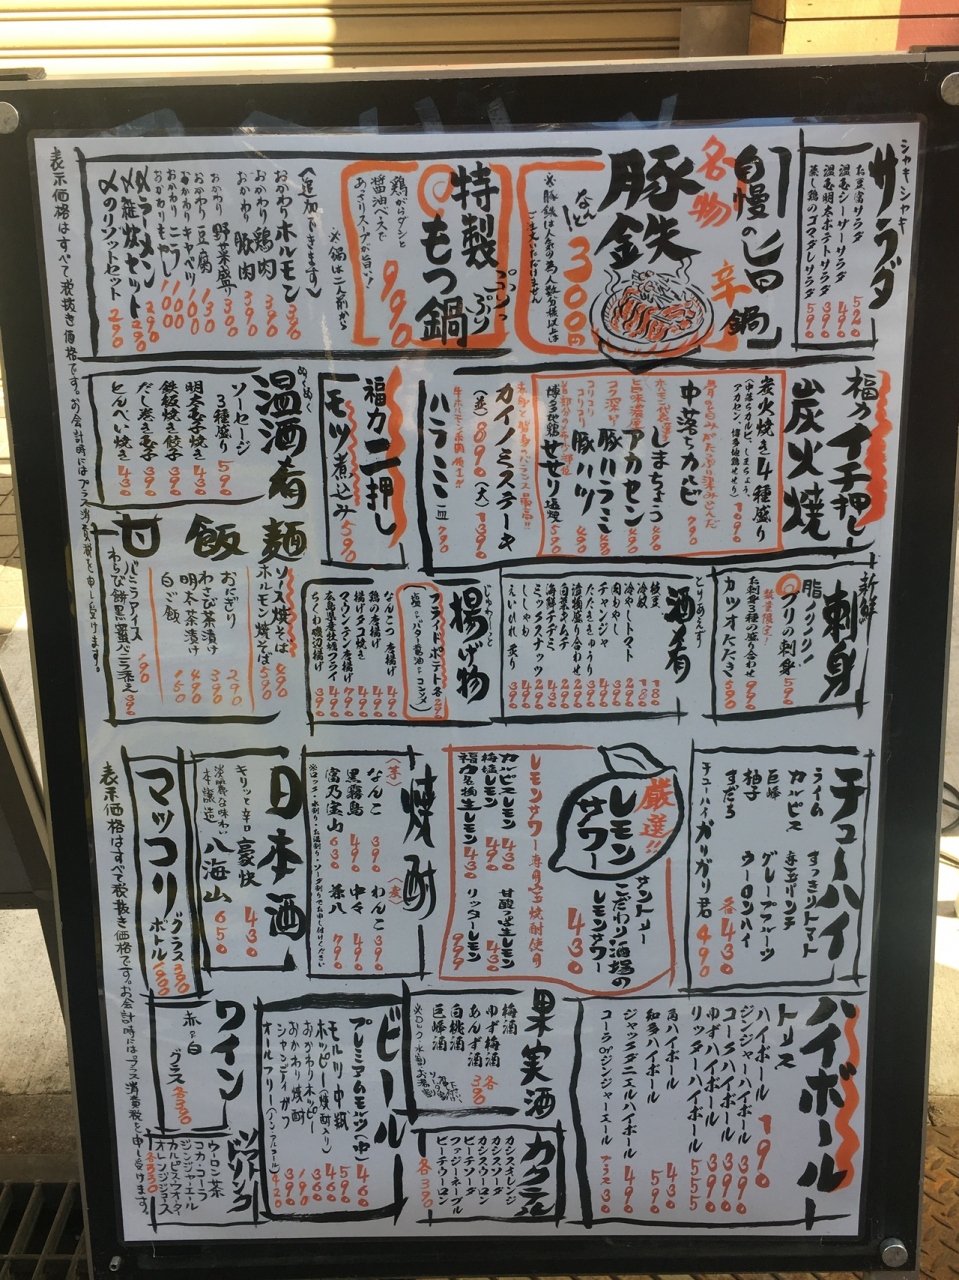 シャキシャキ
サラダ
お豆富サラダ 520
温玉シーザーサラダ 490
温玉明太ポテトサラダ 390
蒸し鶏のゴマダレサラダ 590
自慢の旨辛鍋
名物
豚鉄
なんと300円
※豚鉄は人気の為、人数分様以上は
特製
ぷりっぷり
もつ鍋
990
鶏がらダシと
醤油ベースで
あっさりスープが旨い!
※鍋は二人前から
(追加できます)
おかわりホルモン 390
おかわり鶏肉 390
おかわり豚肉 390
おかわり野菜盛り 300
おかわり豆腐 130
おかわりキャベツ 100
おかわりニラ
おかわりもやし 100
〆ラーメンセット 290
〆雑炊セット 290
〆のリゾットセット 290
表示価格はすべて税抜き価格です。お会計時にはプラス消費税を申し受けます。
福力イチ押し
炭火焼
炭火焼き4種盛り 1090
(中落ちカルビ、しまちょう、
アカセン、博多地鶏せせり)
中落ちカルビ 790
しまちょう 490
アカセン 490
豚ハラミ 490
コリコリ
豚ハツ 490
博多地鶏せせり塩焼 590
カイノミステーキ
(並)890 (大)1390
ハラミミニ皿 790
福力二押し
モツ煮込み 590
ぬくぬく
温酒肴
ソーセージ
3種盛り 590
明太玉子焼き 430
鉄板焼き餃子 390
だし巻き玉子 390
とんぺい焼き 430
麺
ソース焼そば 490
ホルモン焼そば 590
飯
おにぎり 290
わさび茶漬け 390
明太茶漬け 490
白ご飯 150
甘
バニラアイス 190
わらび餅黒蜜バニラ添え 390
新鮮
刺身
脂ノリノリ!
ブリの刺身 590
数量限定!
お刺身3種の盛り合わせ 990
カツオたたき 590
とりあえず
酒肴
枝豆
冷奴
冷やしトマト
肉みやし
チャンジャ
たたききゅうり
漬物盛り合わせ
白菜キムチ
海鮮チヂミ
ミックスナッツ
ししゃも
えいひれ炙り
じゅわーっと
揚げ物
フライドポテト 各290
(塩orバター醤油orコンソメ)
なんこつ唐揚げ 490
鶏の唐揚げ 490
揚げタコ焼き 490
マウンテン唐揚げ 790
広島県産牡蠣フライ 490
ちくわ磯辺揚げ 390
チューハイ
ライム
カルピス
巨峰
柚子
すだち
すっきりトマト
ウーロンハイ
各430
チューハイガリガリ君 490
厳選!!
レモンサワー
サントリー
こだわり酒場の
レモンサワー
430
レモンサワー専用宝焼酎使用
カルピスレモン 430
梅塩レモン 490
福力名物生レモン 430
甘酸っぱ生レモン 430
リッターレモン 999
焼酎
(芋)
なんこ 390
黒霧島 490
富乃宝山 630
(麦)
わんこ 390
中々 490
茶八 790
※ロック・水割り・お湯割り・ソーダ割りでお申し付けください
日本酒
キリッと辛口
豪快 430
淡麗な味わい
本醸造
八海山 650
マッコリ
グラス 300
ボトル
表示価格はすべて税抜き価格です。お会計時にはプラス消費税を申し受けます。
ハイボール
トリス
ハイボール 190
ジンジャーハイボール 399
コークハイボール 399
ゆずハイボール 399
リッターハイボール 555
角ハイボール 430
知多ハイボール 590
ジャックダニエルハイボール 490
コーラorジンジャーエール プラス30
果実酒
梅酒
ゆず梅酒
あんず酒
白桃酒
巨峰酒
各390
カクテル
カシスオレンジ
カシスソーダ
カシスウーロン
ピーチソーダ
ファジーネーブル
ピーチウーロン
各390
ビール
プレミアムモルツ(中) 460
モルツ中瓶 590
ホッピー(焼酎入り) 460
おかわりホッピー 360
おかわり焼酎 190
シャンディガフ 390
オールフリー(ノンアルコール) 420
ワイン
赤or白
グラス 各300
ソフトドリンク
ウーロン茶
コカ・コーラ
ジンジャーエール
カルピスウォーター
オレンジジュース
各330